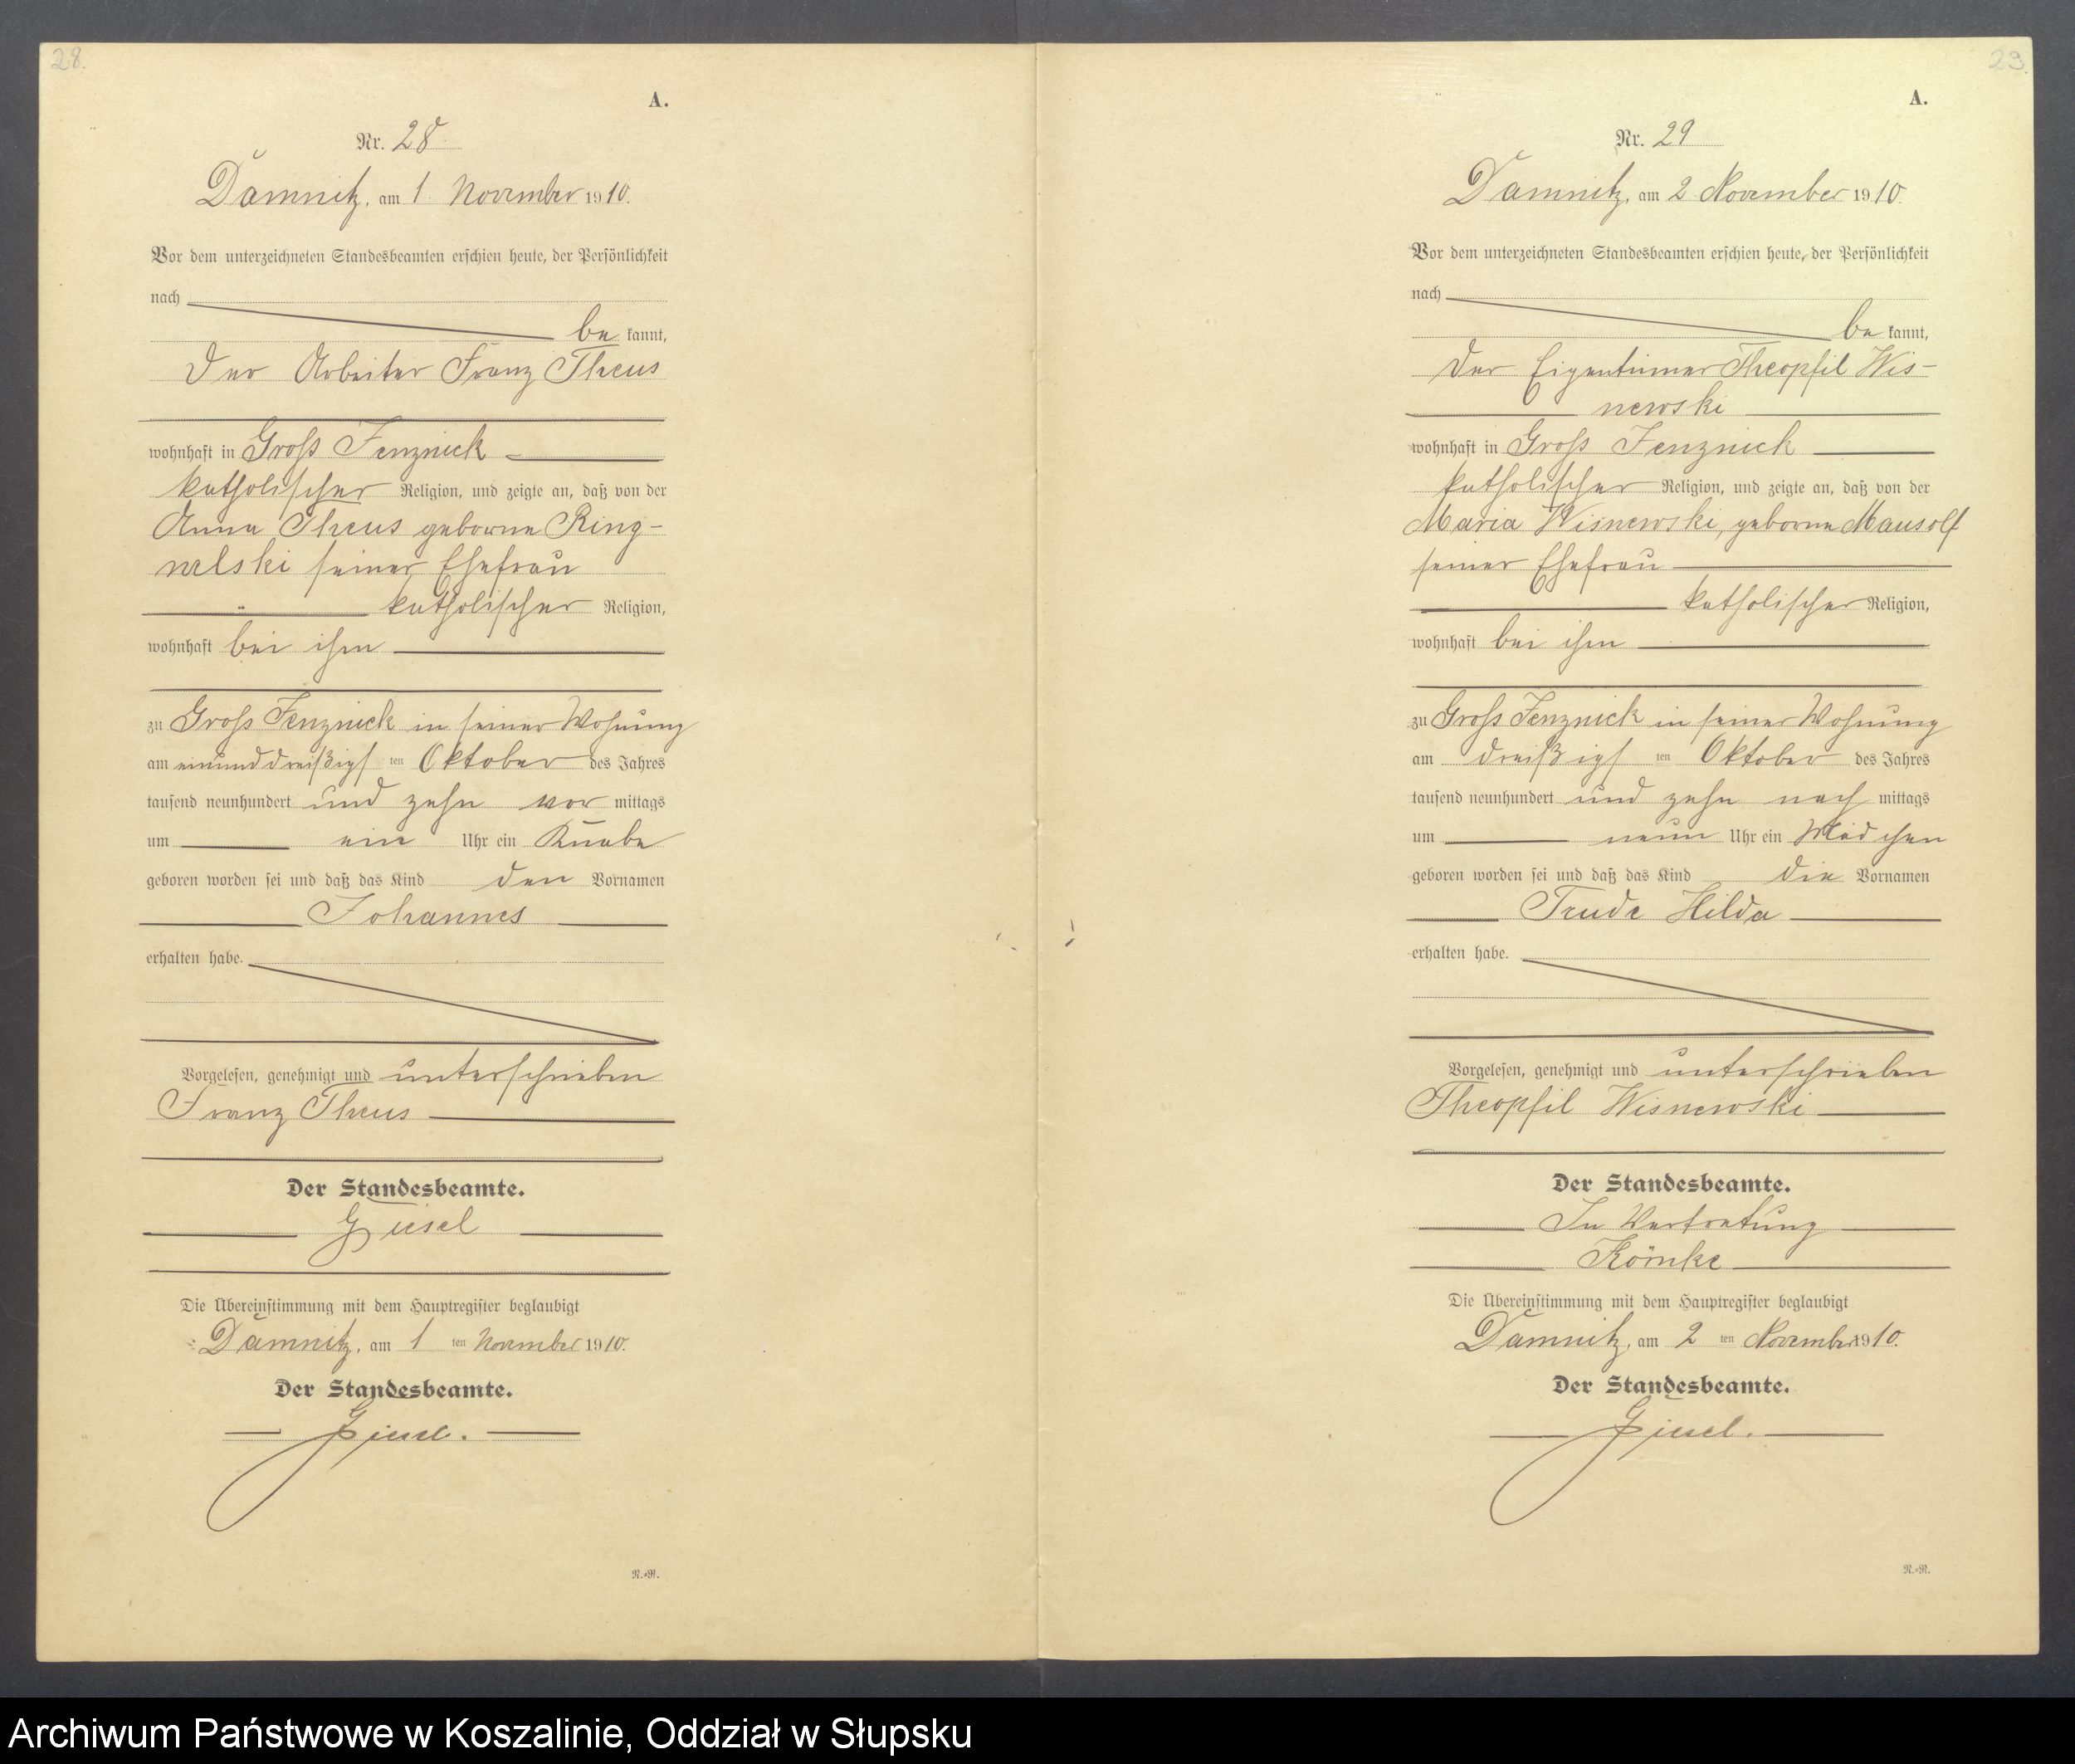 28.
A.
Nr. 28
Damnitz, am 1. November 1910.
Vor dem unterzeichneten Standesbeamten erschien heute, der Persönlichkeit
nach
be kannt,
der Arbeiter Franz Theus
wohnhaft in Groß Jenznick
katholischer Religion, und zeigte an, daß von der
Anna Theus geborne Ring-
welski seiner Ehefrau
katholischer Religion,
wohnhaft bei ihm
zu Groß Jenznick in seiner Wohnung
am einunddreißigsten Oktober des Jahres
tausend neunhundert und zehn vor mittags
um ein Uhr ein Knabe
geboren worden sei und daß das Kind den Vornamen
Johannes
erhalten habe.
Vorgelesen, genehmigt und unterschrieben
Franz Theus
Der Standesbeamte.
Giesel
Die Übereinstimmung mit dem Hauptregister beglaubigt
Damnitz, am 1 ten November 1910.
Der Standesbeamte.
Giesel.
N.=N.
29.
A.
Nr. 29
Damnitz, am 2 November 1910.
Vor dem unterzeichneten Standesbeamten erschien heute, der Persönlichkeit
nach
be kannt,
der Eigentümer Theopfil Wis-
newski
wohnhaft in Groß Jenznick
katholischer Religion, und zeigte an, daß von der
Maria Wisnewski, geborne Mausolf
seiner Ehefrau
katholischer Religion,
wohnhaft bei ihm
zu Groß Jenznick in seiner Wohnung
am dreißigsten Oktober des Jahres
tausend neunhundert und zehn nach mittags
um neun Uhr ein Mädchen
geboren worden sei und daß das Kind die Vornamen
Trude Hilda
erhalten habe.
Vorgelesen, genehmigt und unterschrieben
Theopfil Wisnewski
Der Standesbeamte.
In Vertretung
Die Übereinstimmung mit dem Hauptregister beglaubigt
Damnitz, am 2 ten November 1910.
Der Standesbeamte.
Giesel.
N.=N.
Archiwum Państwowe w Koszalinie, Oddział w Słupsku